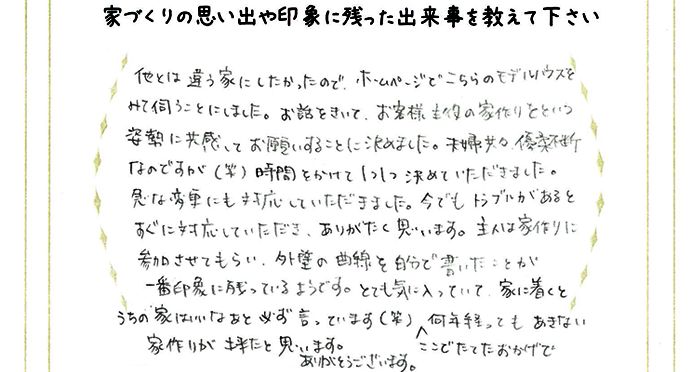 家づくりの思い出や印象に残った出来事を教えて下さい
他とは違う家にしたかったので、ホームページでこちらのモデルハウスを
みて伺うことにしました。お話をきいて、お客様主役の家作りをという
姿勢に共感してお願いすることに決めました。夫婦共々優柔不断
なのですが(笑)時間をかけて1つ1つ決めていただきました。
急な変更にも対応していただきました。今でもトラブルがあると
すぐに対応していただき、ありがたく思います。主人は家作りに
参加させてもらい、外壁の曲線を自分で書いたことが
一番印象に残っているようです。とても気に入っていて、家に着くと
うちの家はいいなぁと必ず言っています(笑)何年経ってもあきない
家作りが出来たと思います。 ここでたてたおかげで
ありがとうございます。